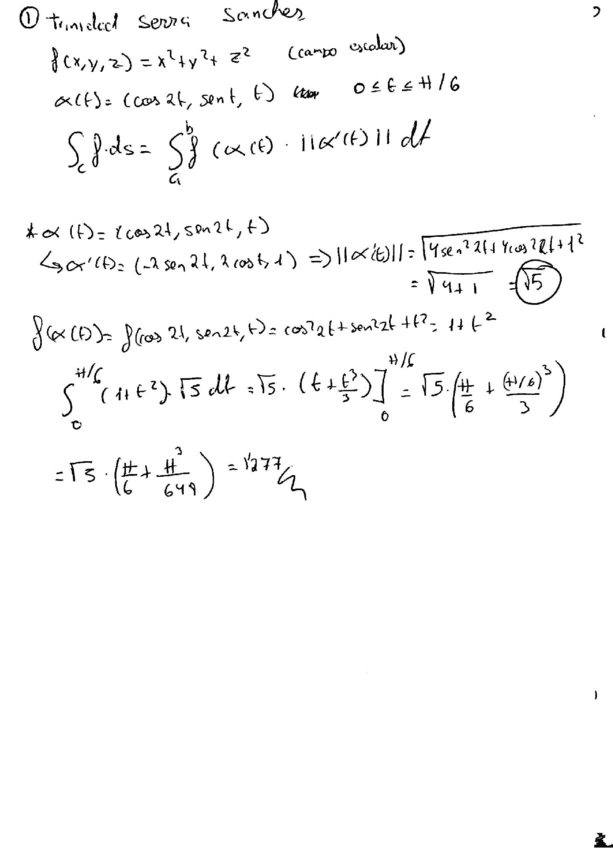 ① Trinidad Serra Sanches
f(x,y,z) = x²+y²+z² (campo escalar)
α(t) = (cos 2t, sen t, t) 0 ≤ t ≤ π/6
∫_c f·ds = ∫_a^b f(α(t)·||α'(t)|| dt
* α(t) = (cos 2t, sen 2t, t)
↳ α'(t) = (-2 sen 2t, 2 cos t, 1) ⇒ ||α'(t)|| = √(4 sen² 2t + 4 cos² 2t + 1²
= √(4+1) = √5
f(α(t)) = f(cos 2t, sen 2t, t) = cos² 2t + sen² 2t + t² = 1+t²
∫_0^{π/6} (1+t²)·√5 dt = √5·(t + t³/3)]_0^{π/6} = √5·(π/6 + (π/6)³/3)
= √5·(π/6 + π³/648) = 1'277